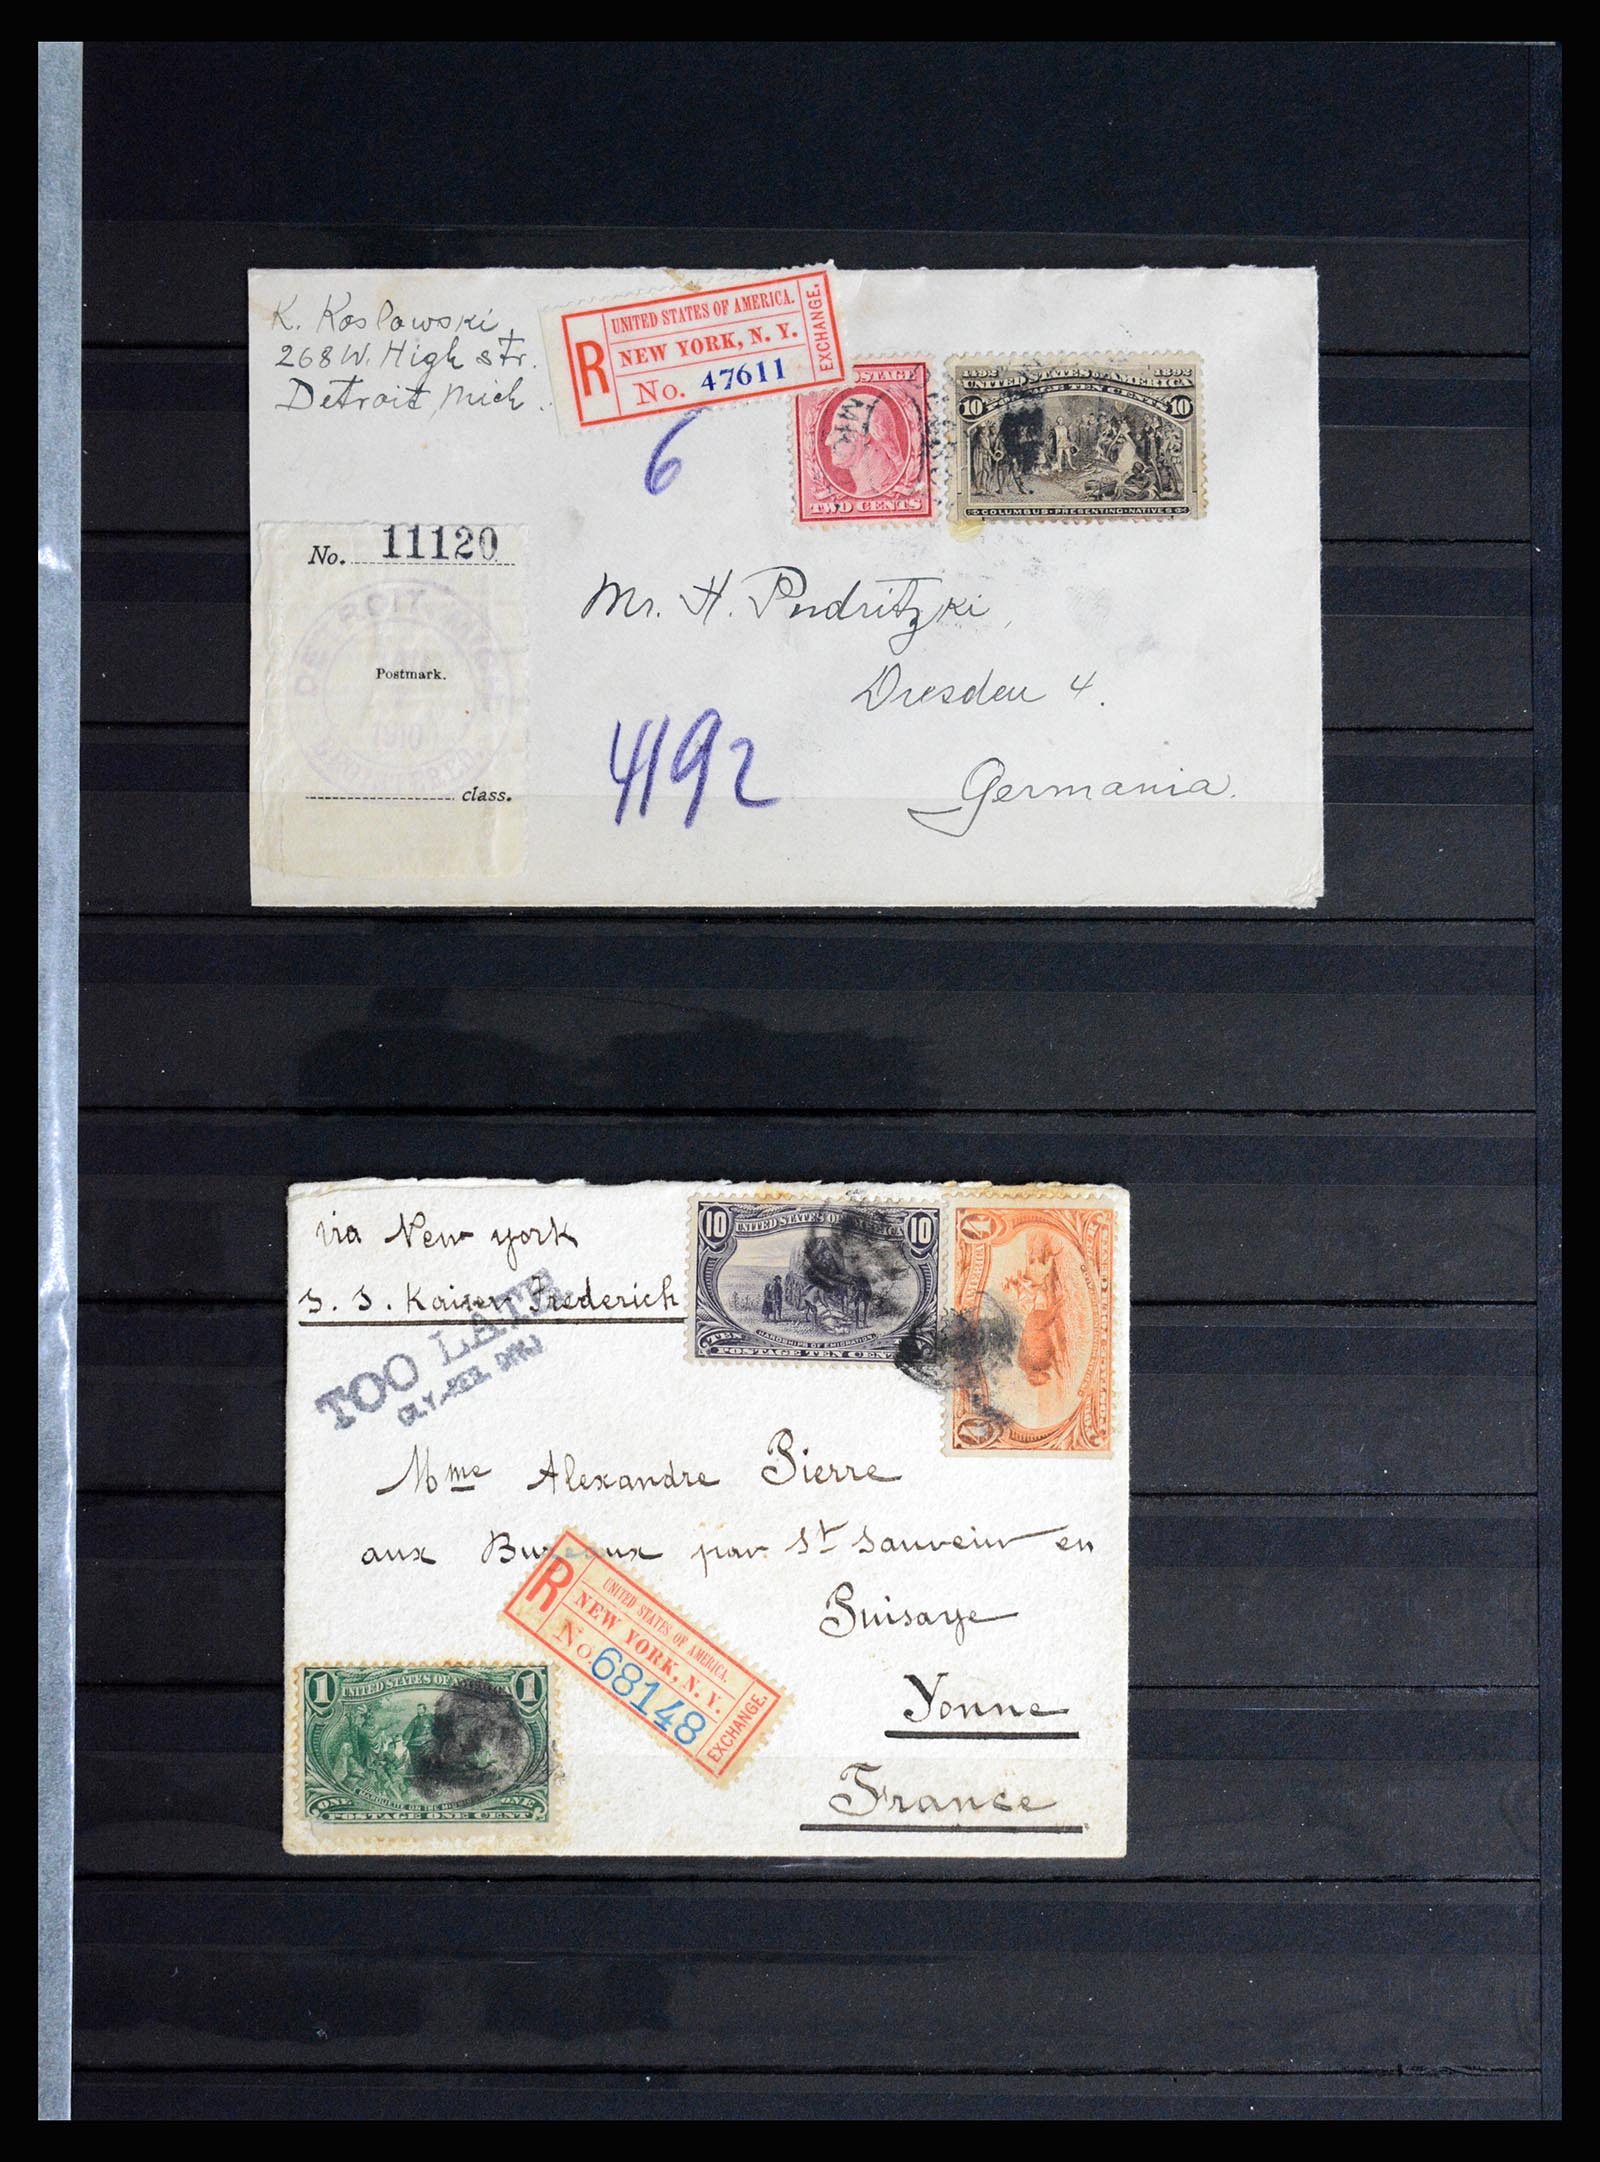 K. Koslowski
268 W. High Str.
Detroit Mich.
R
UNITED STATES OF AMERICA.
NEW YORK, N. Y.
No. 47611
EXCHANGE.
6
POSTAGE
TWO CENTS
1492 1892
UNITED STATES OF AMERICA
POSTAGE TEN CENTS
10 10
COLUMBUS PRESENTING NATIVES
No. 11120
DETROIT, MICH.
Postmark.
1910
REGISTERED
class.
Mr. H. Pudritzki
Dresden 4.
Germania.
4192
via New york
S. S. Kaiser Frederich
TOO LATE
10 10
UNITED STATES OF AMERICA
HARDSHIPS OF EMIGRATION.
TEN CENTS
POSTAGE TEN CENTS
4
4
Mme Alexandre Pierre
aux Bureaux par St Sauveur en
Puisaye
Yonne
France
R
UNITED STATES OF AMERICA.
NEW YORK, N. Y.
No. 68148
EXCHANGE.
1 1
UNITED STATES OF AMERICA
MARQUETTE ON THE
ONE ONE
POSTAGE ONE CENT